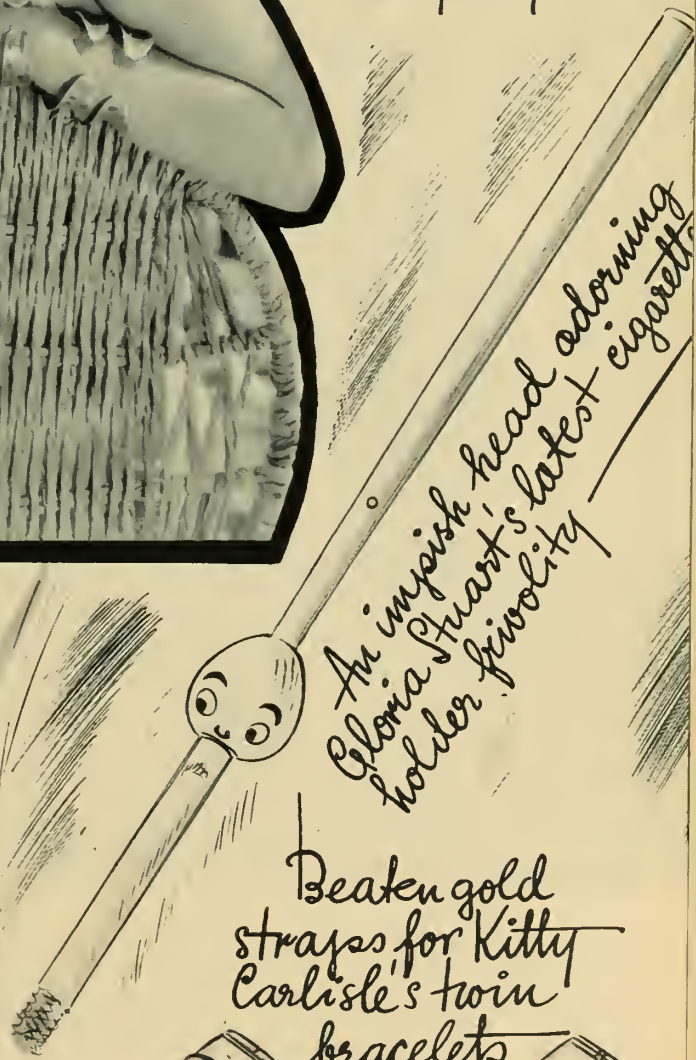 An impish head adorning
Gloria Stuart's latest cigarette
holder frivolity
Beaten gold
straps for Kitty
Carlisle's twin
bracelets